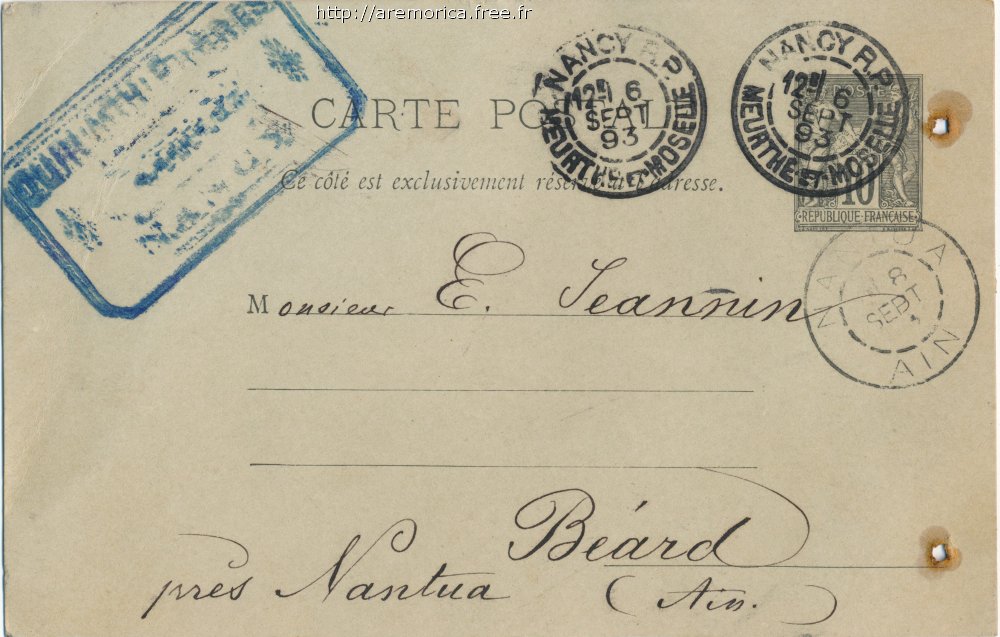 http://aremorica.free.fr
FRÈRES
CARTE POSTALE
Ce côté est exclusivement réservé à l'adresse.
NANCY R.P.
12E/ 6
SEPT
93
MEURTHE ET MOSELLE
NANCY R.P.
12E/ 6
SEPT
93
MEURTHE ET MOSELLE
POSTES
10
REPUBLIQUE FRANÇAISE
NANTUA
8
SEPT
AIN
Monsieur E. Jeannin
Béard
près Nantua (Ain.)